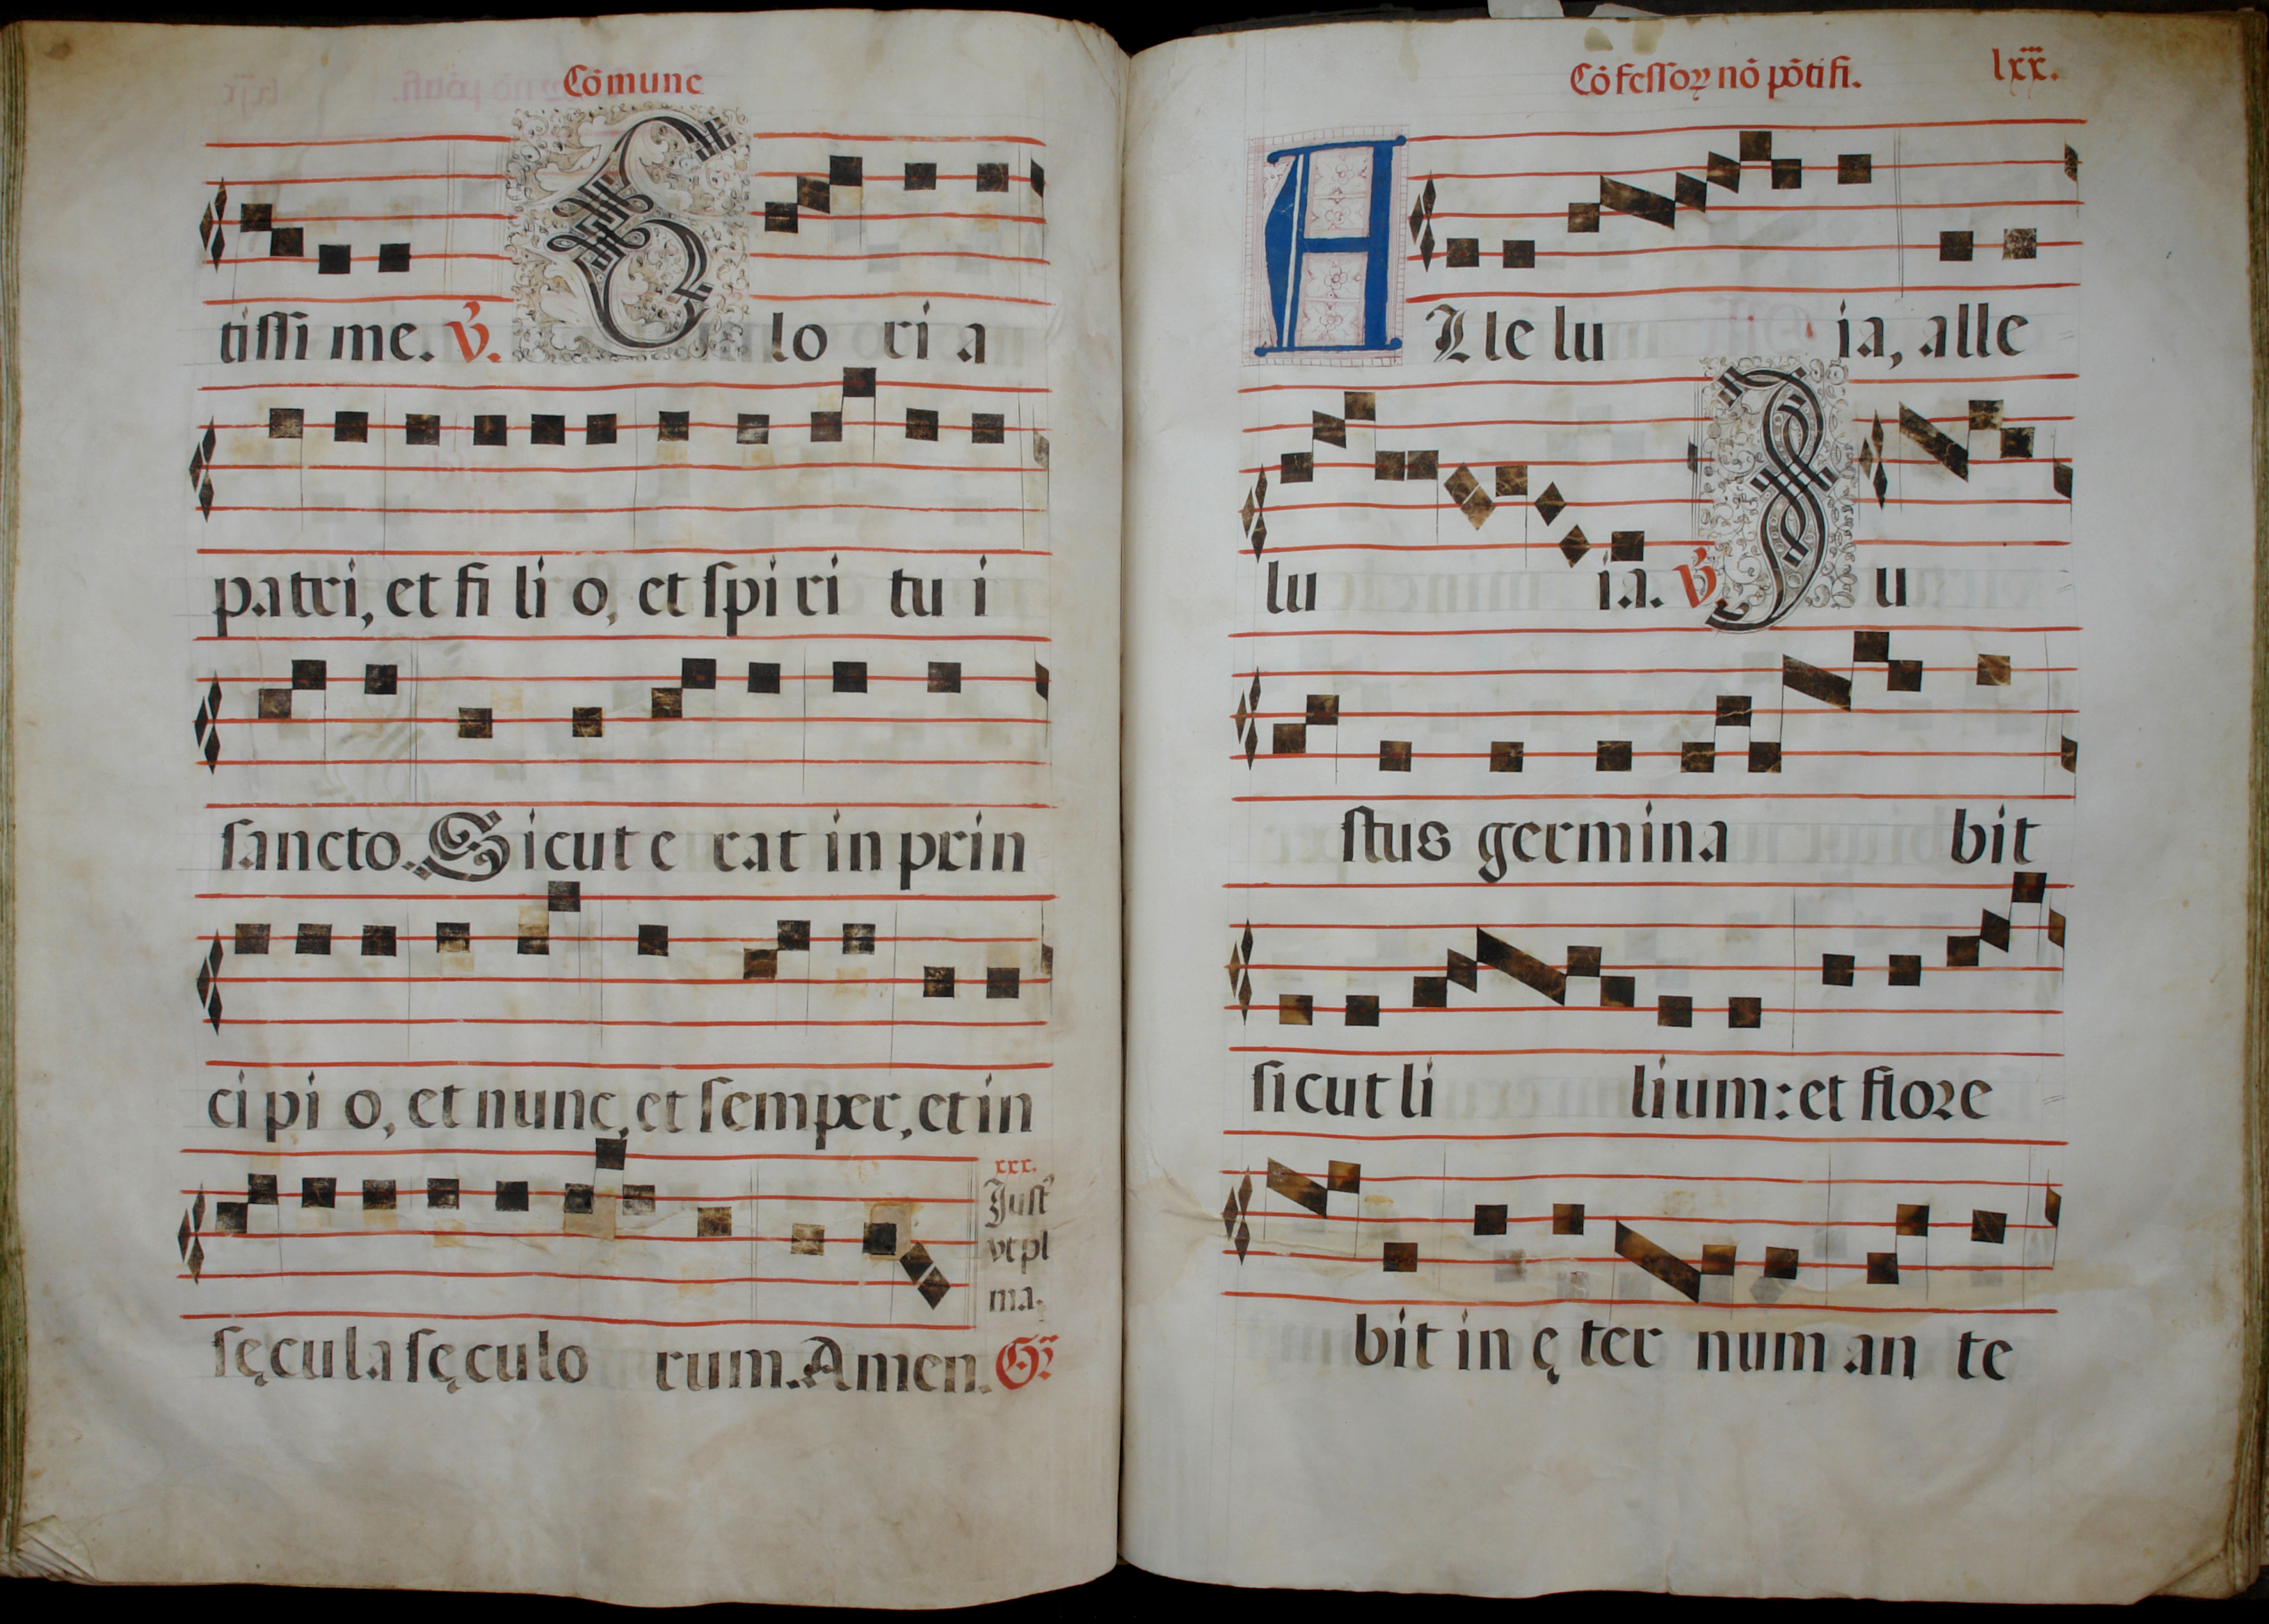 Cōmune
tissi me. ℣. G lo ri a
patri, et fi li o, et spi ri tu i
sancto. Sicut e rat in prin
ci pi o, et nunc, et semper, et in
xxx.
Just⁹
vt pl
ma.
sęcula sęculo rum. Amen. Gͬ.
Cōfessoꝝ nō pōtifi. lxx.
A Lle lu ia, alle
lu ia. ℣. J u
stus germina bit
sicut li lium: et floꝛe
bit in ę ter num an te